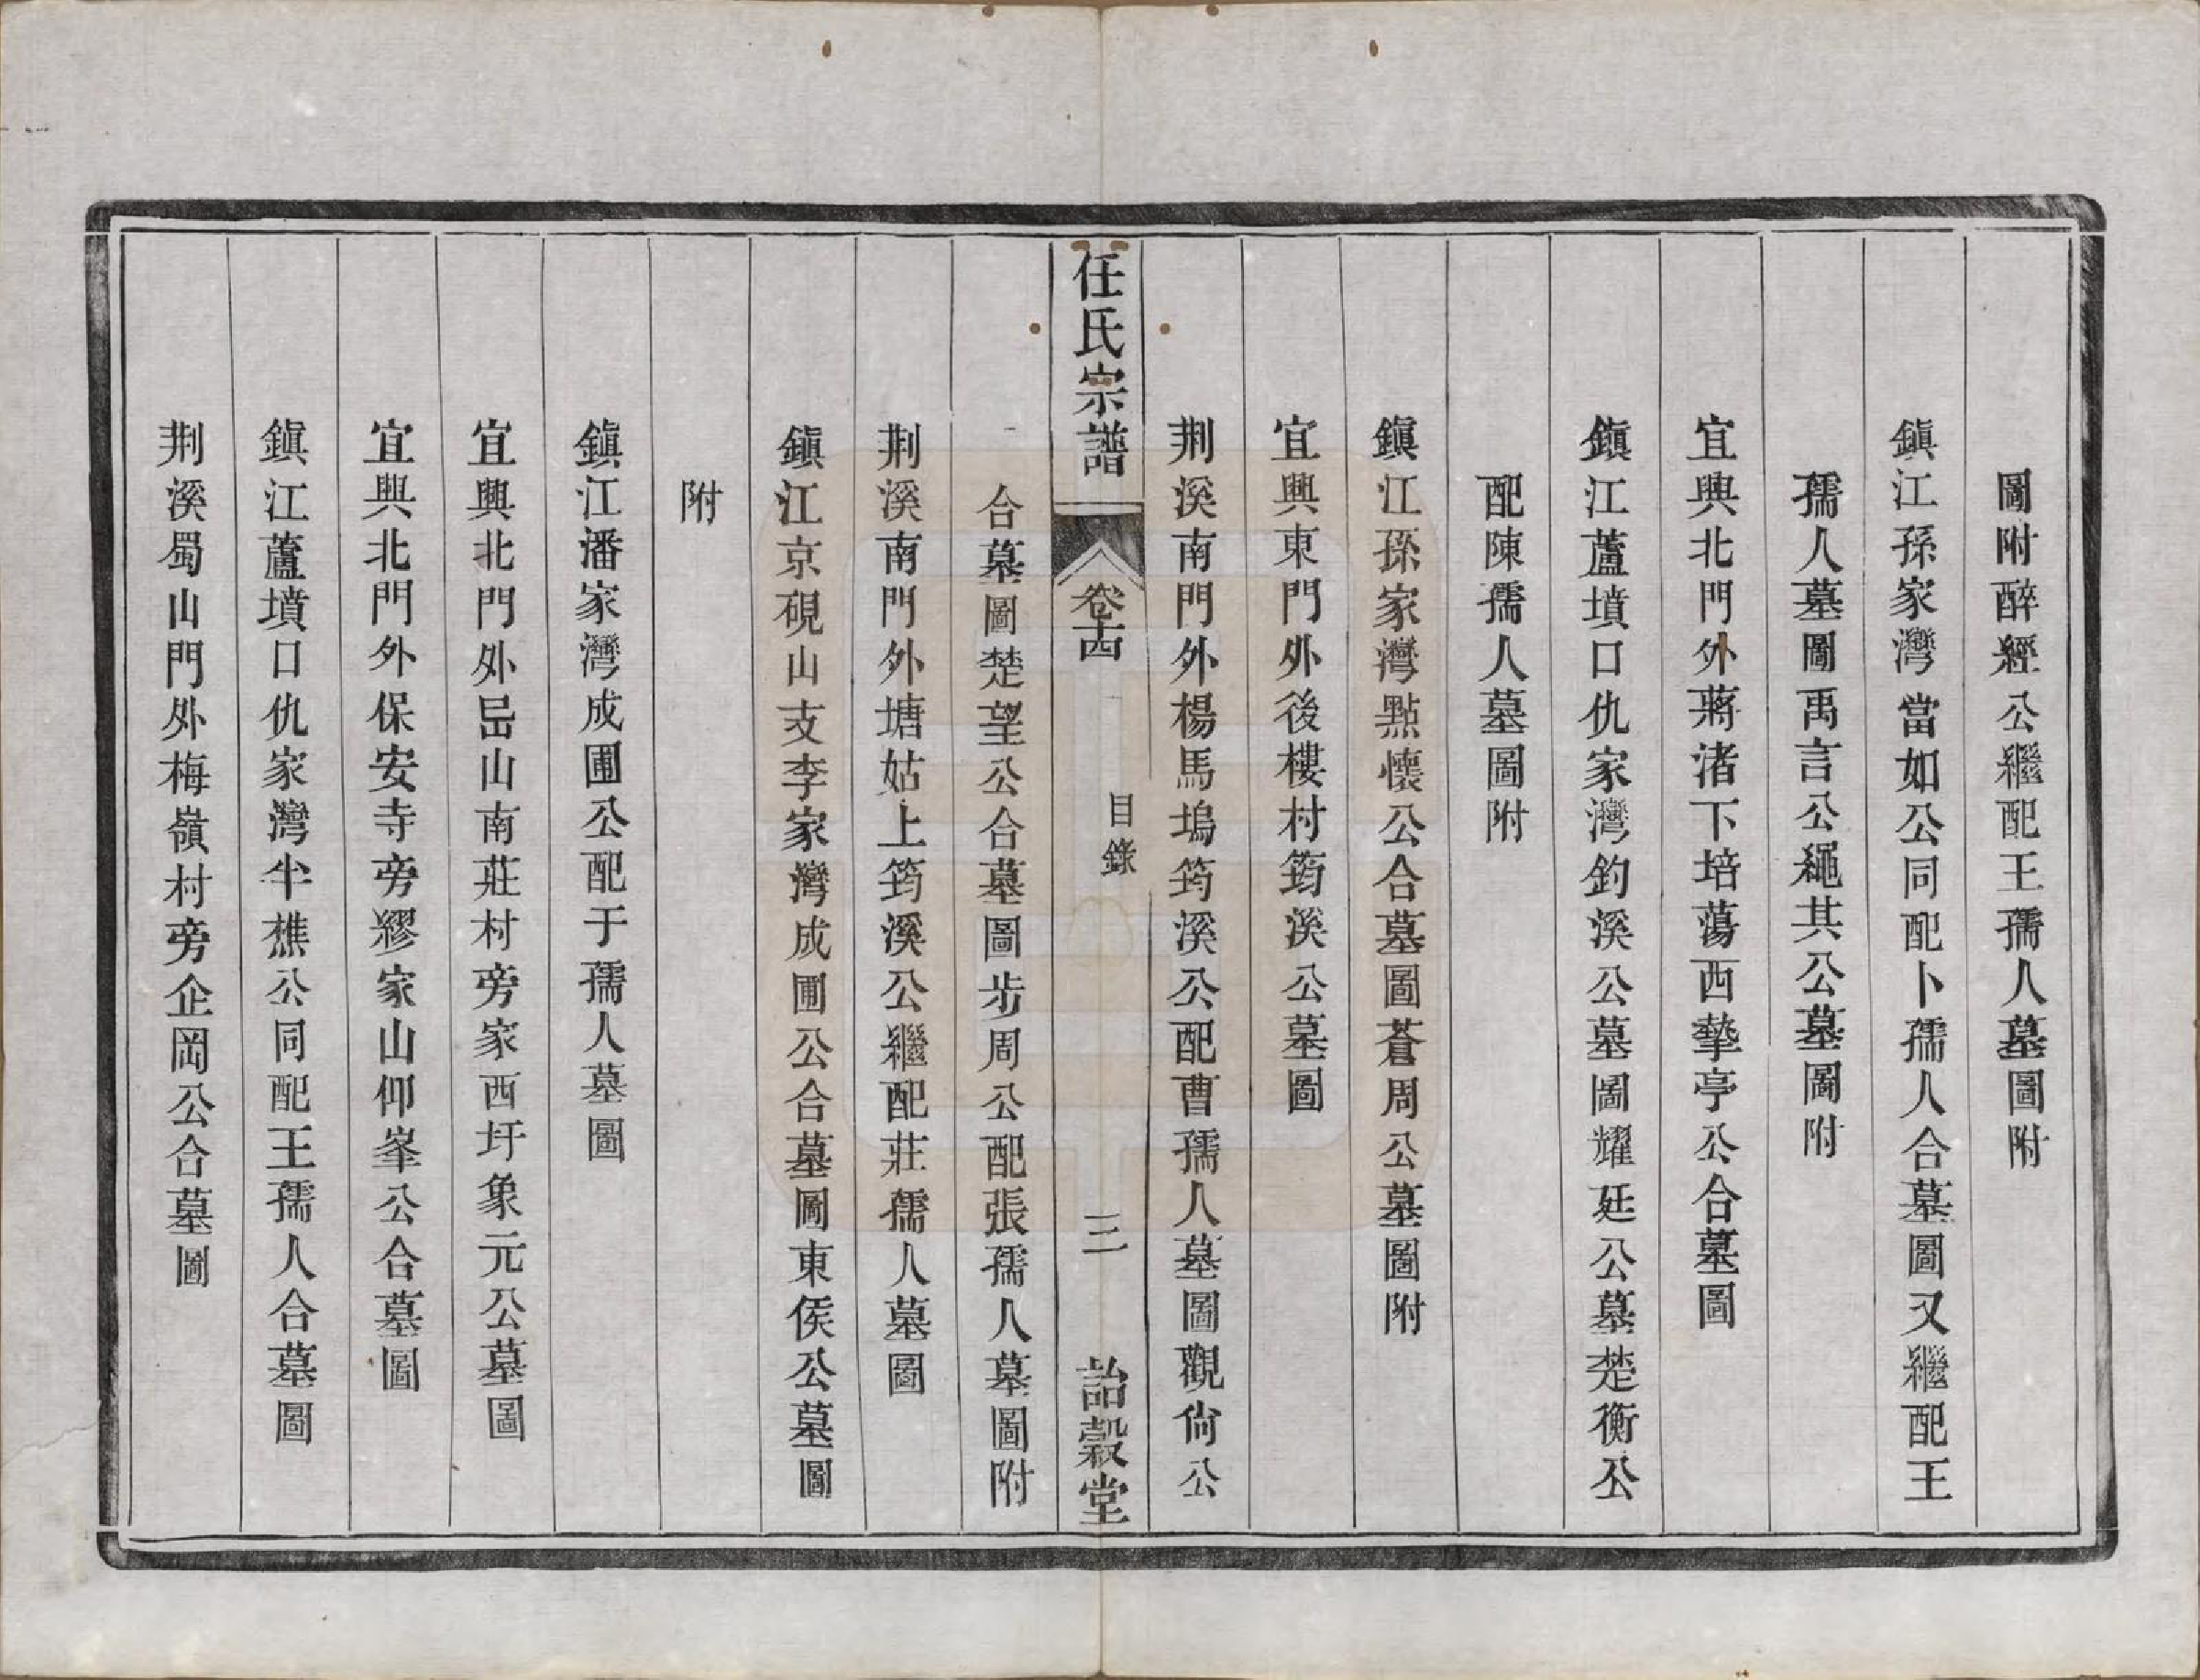 圖附醉經公繼配王孺人墓圖附
鎭江孫家灣當如公同配卜孺人合墓圖又繼配王
孺人墓圖禹言公繩其公墓圖附
宜興北門外蔣渚下培蕩西摯亭公合墓圖
鎭江蘆墳口仇家灣釣溪公墓圖耀廷公墓楚衡公
配陳孺人墓圖附
鎭江孫家灣點懷公合墓圖蒼周公墓圖附
宜興東門外後樓村筠溪公墓圖
荆溪南門外楊馬塢筠溪公配曹孺人墓圖觀尙公
任氏宗譜
卷十四
目錄
三
詒穀堂
合墓圖楚望公合墓圖步周公配張孺人墓圖附
荆溪南門外塘姑上筠溪公繼配莊孺人墓圖
鎭江京硯山支李家灣成圃公合墓圖東侯公墓圖
附
鎭江潘家灣成圃公配于孺人墓圖
宜興北門外岊山南莊村旁家西圩象元公墓圖
宜興北門外保安寺旁繆家山仰峯公合墓圖
鎭江蘆墳口仇家灣半樵公同配王孺人合墓圖
荆溪蜀山門外梅嶺村旁企岡公合墓圖